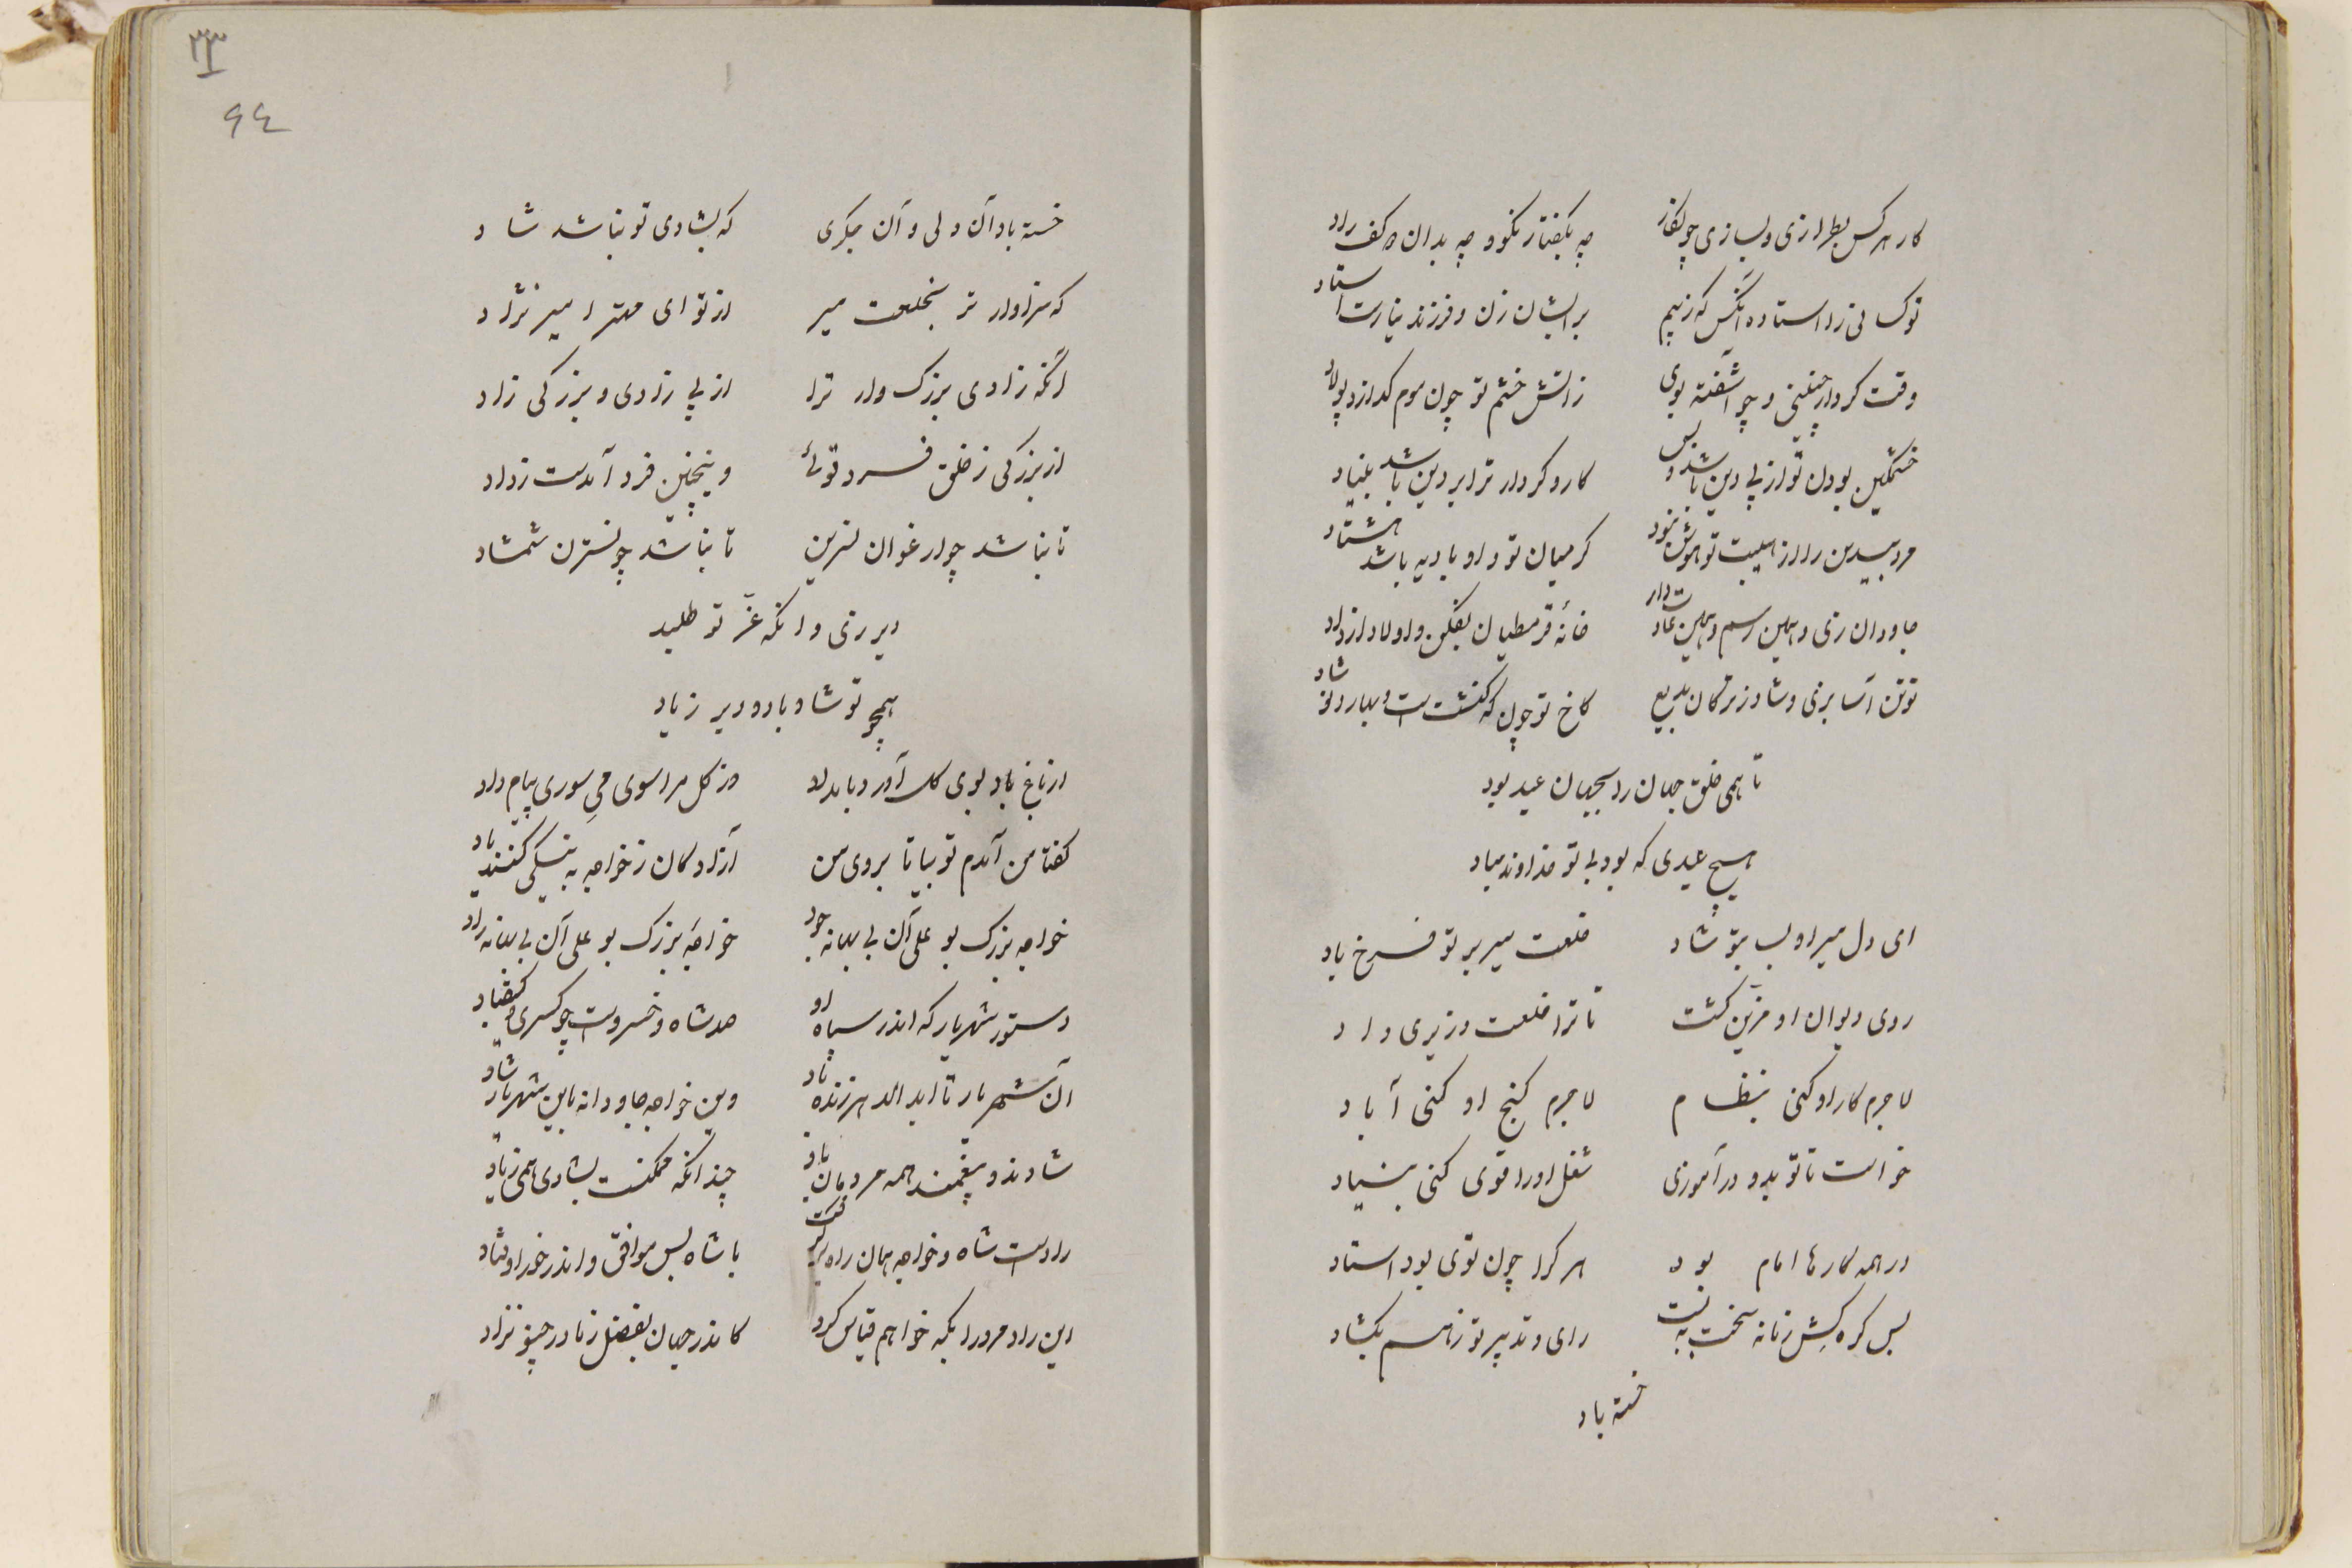 کار هر کس بطرازی و بسازی چو نگار
چه بگفتار نکو و چه بدان دو کف راد
تو کسانی را استاده آنکس که زبیم
بر ایشان زن و فرزند نیارست استاد
وقت کردار چنینی و چو آشفته بوی
زآتش خشم تو چون موم گدازد پولاد
خشمگین بودن تو از پی دین باشد و بس
کار و کردار ترا بر دین باشد بنیاد
مرد بیدین را از هیبت تو هوش نبود
گر میان تو و او بادیه باشد هشتاد
جاودان زی و همین رسم و همین عادت دار
خانه قرمطیان بفکن و اولاد از لاد
تو تن آسا بزی و شاد زترکان بدیع
کاخ تو چون که کنشت است و بهار نوشاد
تا همی خلق جهان را بجهان عید بود
هیچ عیدی که بود بی تو خداوند مباد
ای دل میر اولیا بتو شاد
خلعت میر بر تو فرخ باد
روی دیوان او مزین گشت
تا ترا خلعت وزیری داد
لاجرم کار او کنی بنظام
لاجرم گنج او کنی آباد
خواست تا تو بدو در آموزی
شغل او را قوی کنی بنیاد
در همه کارها امام بود
هر کرا چون توی بود استاد
بس گره کش زمانه سخت به بست
رای و تدبیر تو زهم بگشاد
خسته باد
۳۳
۹٤
خسته باد آن دلی و آن جگری
که بشادی تو نباشد شاد
که سزاوارتر بخلعت میر
از تو ای مهتر امیر نژاد
آنکه زادی بزرگ وار ترا
از پی رادی و بزرگی زاد
از بزرگی ز خلق فرد توئی
وینچنین فرد آمدست زداد
تا نباشد چو ارغوان نسرین
تا نباشد چو نسترن شمشاد
دیر زی و انکه عز تو طلبد
همچو تو شاد باد و دیر زیاد
از باغ باد بوی گل آورد بامداد
وز گل مرا سوی می سوری پیام داد
گفتا من آمدم تو بیا تا بروی من
آزادگان زخواجه به نیکی کنند یاد
خواجه بزرگ بو علی آن بی بهانه جود
خواجه بزرگ بو علی آن بی بهانه راد
دستور شهریار که اندر سپاه او
صد شاه و خسروست چو کسری و کیقباد
آن شهریار تا ابد الدهر زنده باد
وین خواجه جاودانه باین شهریار شاد
شادند و بیغمند همه مردمان باد
چندانکه ممکنست بشادی همی زیاد
رادست شاه و خواجه همان راه بر گرفت
با شاه بس موافق و اندر خور اوفتاد
این راد مرد را بکه خواهم قیاس کرد
کاندر جهان بفضل زمادر چنو نزاد